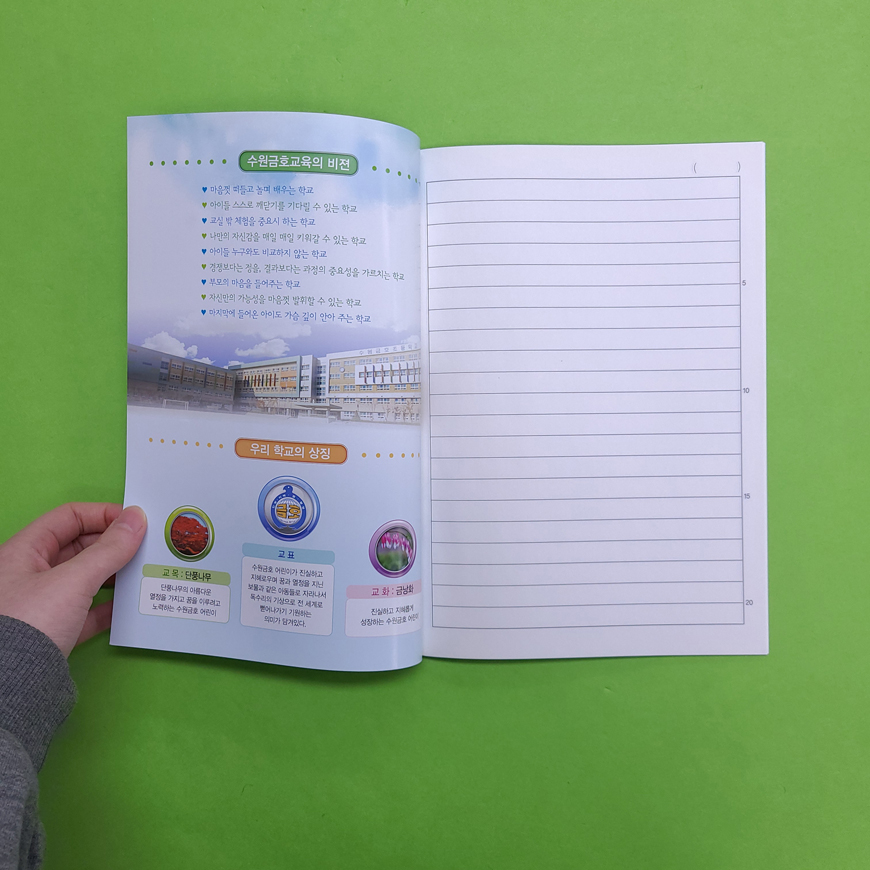 수원금호교육의 비젼
마음껏 떠들고 놀며 배우는 학교
아이들 스스로 깨닫기를 기다릴 수 있는 학교
교실 밖 체험을 중요시 하는 학교
나만의 자신감을 매일 매일 키워갈 수 있는 학교
아이들 누구와도 비교하지 않는 학교
경쟁보다는 정을, 결과보다는 과정의 중요성을 가르치는 학교
부모의 마음을 들어주는 학교
자신만의 가능성을 마음껏 발휘할 수 있는 학교
마지막에 들어온 아이도 가슴 깊이 안아 주는 학교
수원금호초등학교
우리 학교의 상징
금호
교 목 : 단풍나무
단풍나무의 아름다운
열정을 가지고 꿈을 이루려고
노력하는 수원금호 어린이
교 표
수원금호 어린이가 진실하고
지혜로우며 꿈과 열정을 지닌
보물과 같은 아동들로 자라나서
독수리의 기상으로 전 세계로
뻗어나가기 기원하는
의미가 담겨있다.
교 화 : 금낭화
진실하고 지혜롭게
성장하는 수원금호 어린이
( )
5
10
15
20